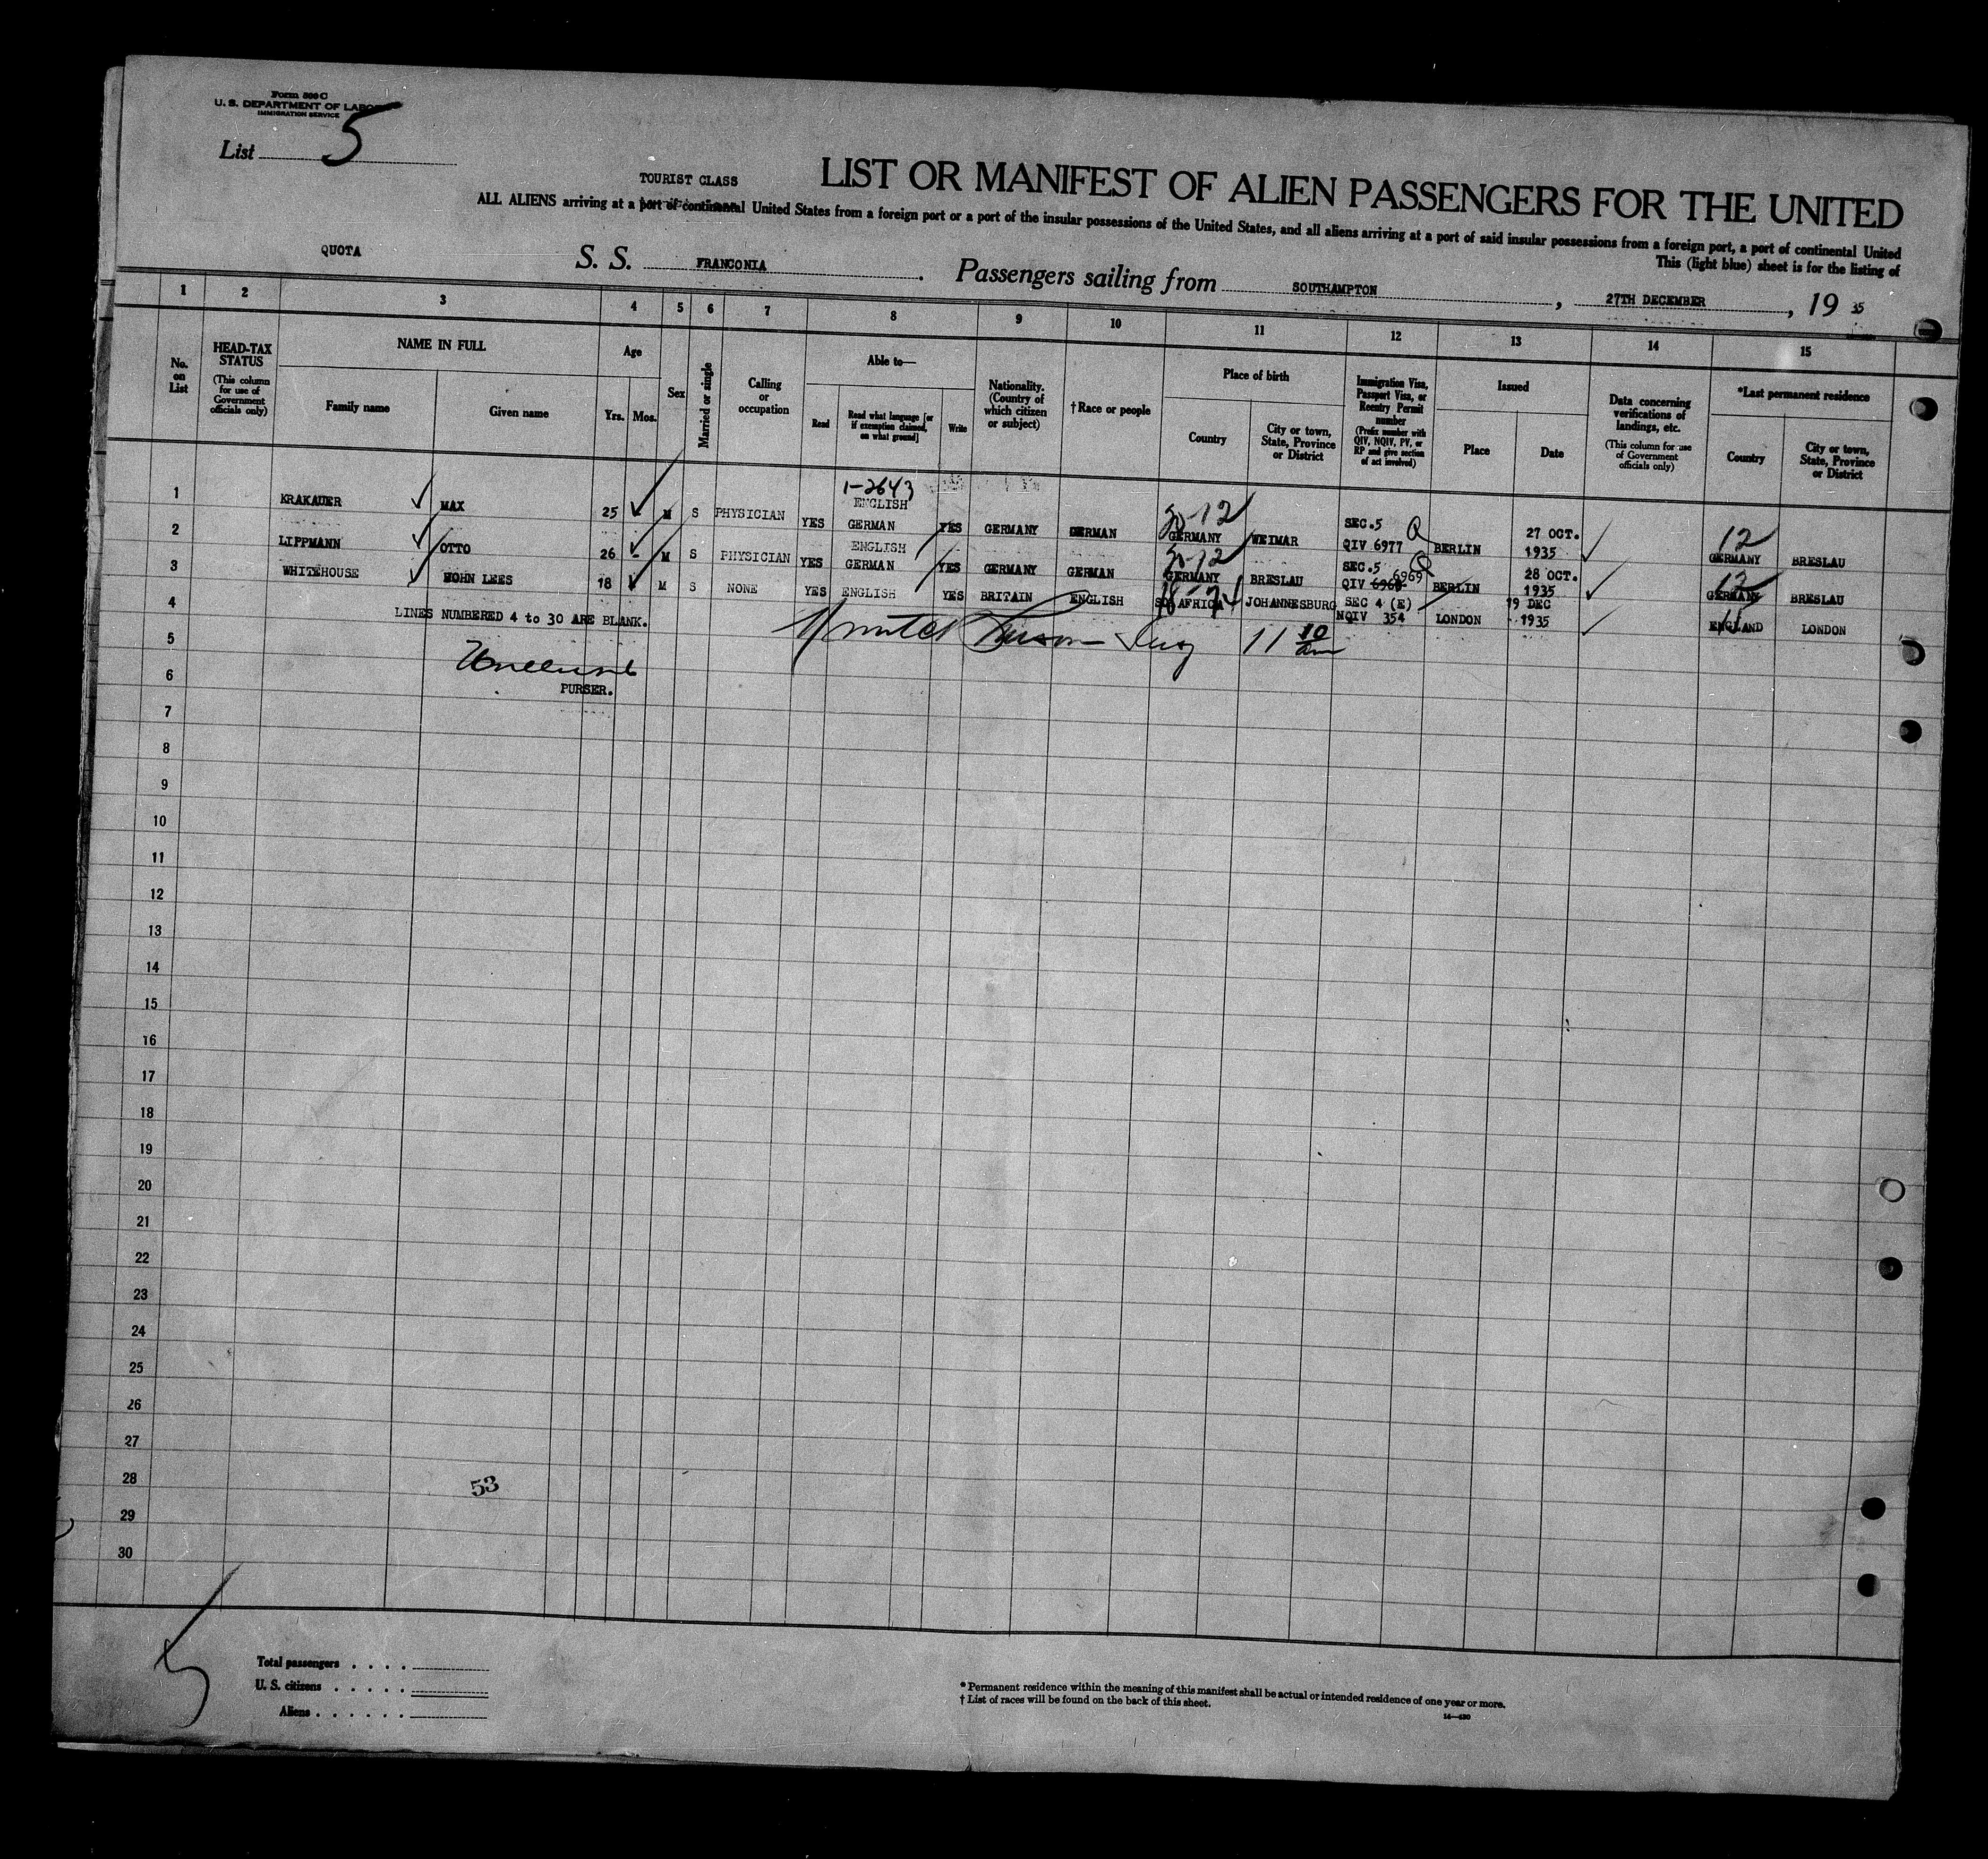 Form 500 C
U. S. DEPARTMENT OF LABOR
IMMIGRATION SERVICE
List 5
TOURIST CLASS
LIST OR MANIFEST OF ALIEN PASSENGERS FOR THE UNITED
ALL ALIENS arriving at a port of continental United States from a foreign port or a port of the insular possessions of the United States, and all aliens arriving at a port of said insular possessions from a foreign port, a port of continental United
This (light blue) sheet is for the listing of
QUOTA S. S. FRANCONIA . Passengers sailing from SOUTHAMPTON , 27TH DECEMBER , 19 35
1 2 3 4 5 6 7 8 9 10 11 12 13 14 15
No. on List
HEAD-TAX STATUS
(This column for use of Government officials only)
NAME IN FULL
Family name Given name
Age
Yrs. Mos.
Sex
Married or single
Calling or occupation
Able to—
Read
Read what language [or if exemption claimed, on what ground]
Write
Nationality. (Country of which citizen or subject)
†Race or people
Place of birth
Country
City or town, State, Province or District
Immigration Visa, Passport Visa, or Reentry Permit number
(Prefix number with QIV, NQIV, PV, or RP and give section of act involved)
Issued
Place Date
Data concerning verifications of landings, etc.
(This column for use of Government officials only)
*Last permanent residence
Country
City or town, State, Province or District
1-2643
1 KRAKAUER MAX 25 M S PHYSICIAN YES ENGLISH GERMAN YES GERMANY GERMAN GERMANY WEIMAR SEC.5 Q QIV 6977 BERLIN 27 OCT. 1935 12 GERMANY BRESLAU
2 LIPPMANN OTTO 26 - M S PHYSICIAN YES ENGLISH GERMAN YES GERMANY GERMAN GERMANY BRESLAU SEC.5 Q QIV 6969 BERLIN 28 OCT. 1935 12 GERMANY BRESLAU
3 WHITEHOUSE JOHN LEES 18 M S NONE YES ENGLISH YES BRITAIN ENGLISH SO AFRICA JOHANNESBURG SEC 4 (E) NQIV 354 LONDON 19 DEC 1935 11 ENGLAND LONDON
4 LINES NUMBERED 4 to 30 ARE BLANK.
11 30 am
5
6 PURSER.
7
8
9
10
11
12
13
14
15
16
17
18
19
20
21
22
23
24
25
26
27
28 53
29
30
5
Total passengers . . . .
U. S. citizens . . . . .
Aliens . . . . . .
* Permanent residence within the meaning of this manifest shall be actual or intended residence of one year or more.
† List of races will be found on the back of this sheet.
14—430